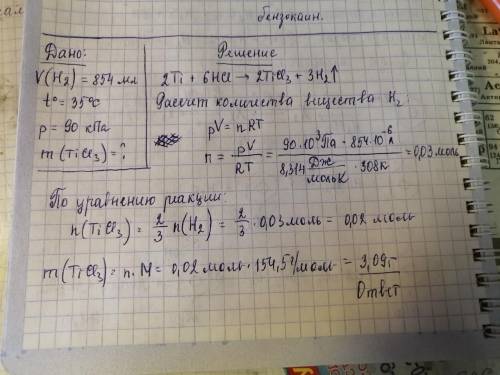 бензокаин.
Дано:
V(H₂) = 854 мл
t° = 35°C
p = 90 кПа
m(TiCl₃) = ?
Решение
2Ti + 6HCl → 2TiCl₃ + 3H₂↑
Рассчет количества вещества H₂:
pV = nRT
n = pV / RT = 90·10³Па · 854·10⁻⁶ / 8,314 Дж/моль·К · 308К = 0,03 моль
По уравнению реакции:
n(TiCl₃) = 2/3 n(H₂) = 2/3 · 0,03 моль = 0,02 моль
m(TiCl₃) = n·M = 0,02 моль · 154,5 г/моль = 3,09г
Ответ